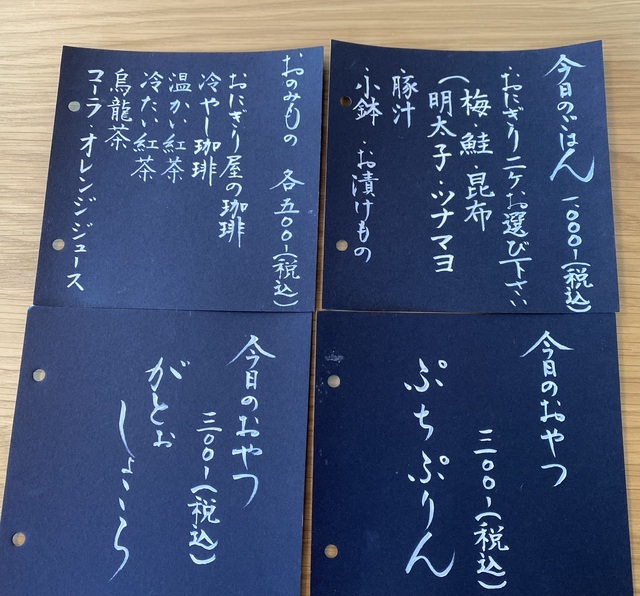 今日のごはん 一、〇〇〇-(税込)
・おにぎり二ケお選び下さい
(梅 鮭 昆布
明太子・ツナマヨ
・豚汁
・小鉢 ・お漬けもの
おのみもの 各五〇〇-(税込)
おにぎり屋の珈琲
冷やし珈琲
温かい紅茶
冷たい紅茶
烏龍茶
コーラ オレンジジュース
今日のおやつ
三〇〇-(税込)
ぷちぷりん
今日のおやつ
三〇〇-(税込)
がとぉ
しょこら